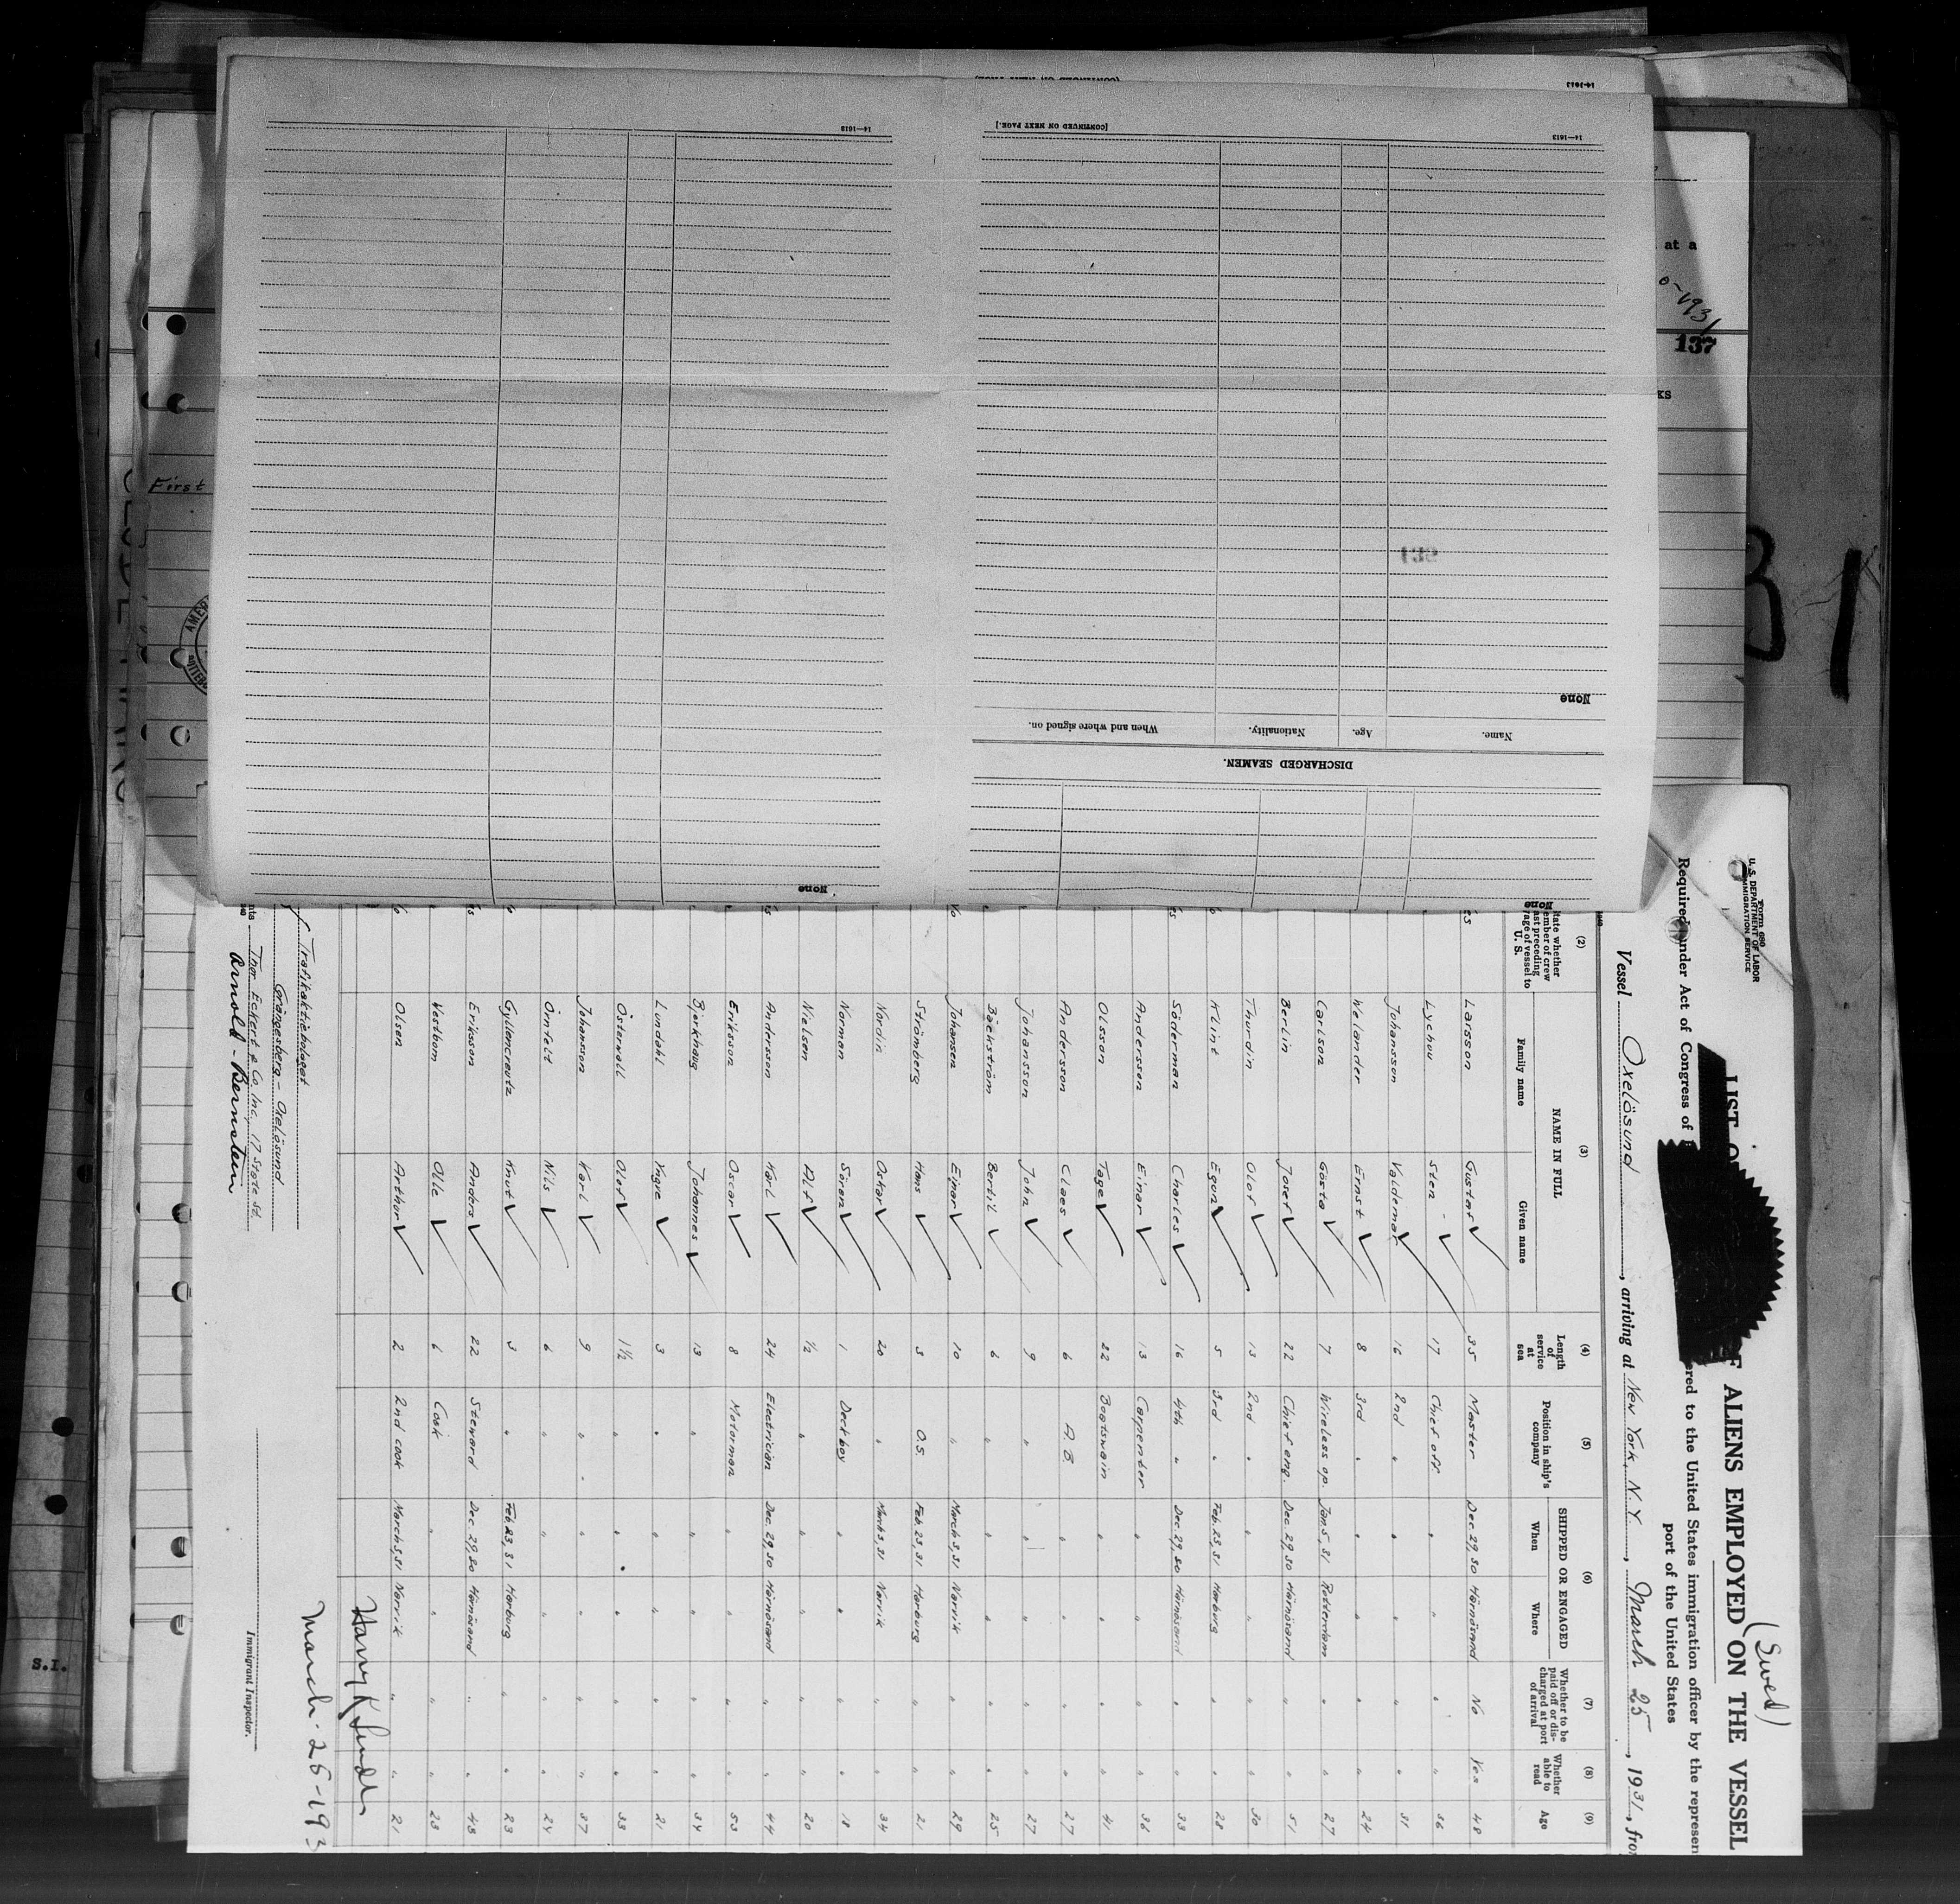 Form 680
U. S. DEPARTMENT OF LABOR
IMMIGRATION SERVICE
(Swed)
ALIENS EMPLOYED ON THE VESSEL
Required under Act of Congress of
ered to the United States immigration officer by the represen
port of the United States
Vessel Oxelösund, arriving at New York, N.Y., March 25, 1931, fro
(2) (3) (4) (5) (6) (7) (8) (9)
NAME IN FULL
SHIPPED OR ENGAGED
Family name Given name Length of service at sea Position in ship's company When Where Whether to be paid off or discharged at port of arrival Whether able to read Age
Larsson Gustaf 35 Master Dec 29,30 Härnösand No Yes 48
Lychou Sten 17 Chief off. " " " " 36
Johansson Valdemar 16 2nd " " " " " 31
Welander Ernst 8 3rd " " " " " 24
Carlson Gösta 7 Wireless op. Jan 5,31 Rotterdam " " 27
Berlin Josef 22 Chief eng. Dec 29,30 Härnösand " " 51
Thurdin Olof 13 2nd " " " " " 30
Klint Egon 5 3rd " Feb 23,31 Harburg " " 28
Söderman Charles 16 4th " Dec 29,30 Härnösand " " 33
Andersson Einar 13 Carpenter " " " " 36
Olsson Tage 22 Boatswain " " " " 41
Andersson Claes 6 A.B. " " " " 27
Johansson John 9 " " " " " 27
Bäckström Bertil 6 " " " " " 25
Johansen Einar 10 " March 3,31 Narvik " " 29
Strömberg Hans 3 O.S. Feb 23,31 Harburg " " 21
Nordin Oskar 20 " March 3,31 Narvik " " 34
Norman Sören 1 Deckboy " " " " 18
Nielsen Alf ½ " " " " " 20
Andersson Karl 24 Electrician Dec 29,30 Härnösand " " 44
Eriksson Oscar 8 Motorman " " " " 53
Bjerkhaug Johannes 13 " " " " " 34
Lundahl Yngve 3 " " " " " 21
Österwall Olof 1½ " " " " " 33
Johansson Karl 9 " " " " " 37
Örnfelt Nils 6 " " " " " 24
Gyllencreutz Knut 3 " Feb 23,31 Harburg " " 23
Eriksson Anders 22 Steward Dec 29,30 Härnösand " " 45
Westbom Olle 6 Cook " " " " 23
Olsen Arthur 2 2nd cook March 3,31 Narvik " " 21
Trafikaktiebolaget
Grängesberg - Oxelösund
Thor Eckert & Co, Inc, 17 State St.
Arnold - Bernstein
March - 25 - 193
Immigrant Inspector.
[CONTINUED ON NEXT PAGE.]
14—1613
14—1613
None
Name. Age. Nationality. When and where signed on.
DISCHARGED SEAMEN.
None
None
at a
137
First
S.I.